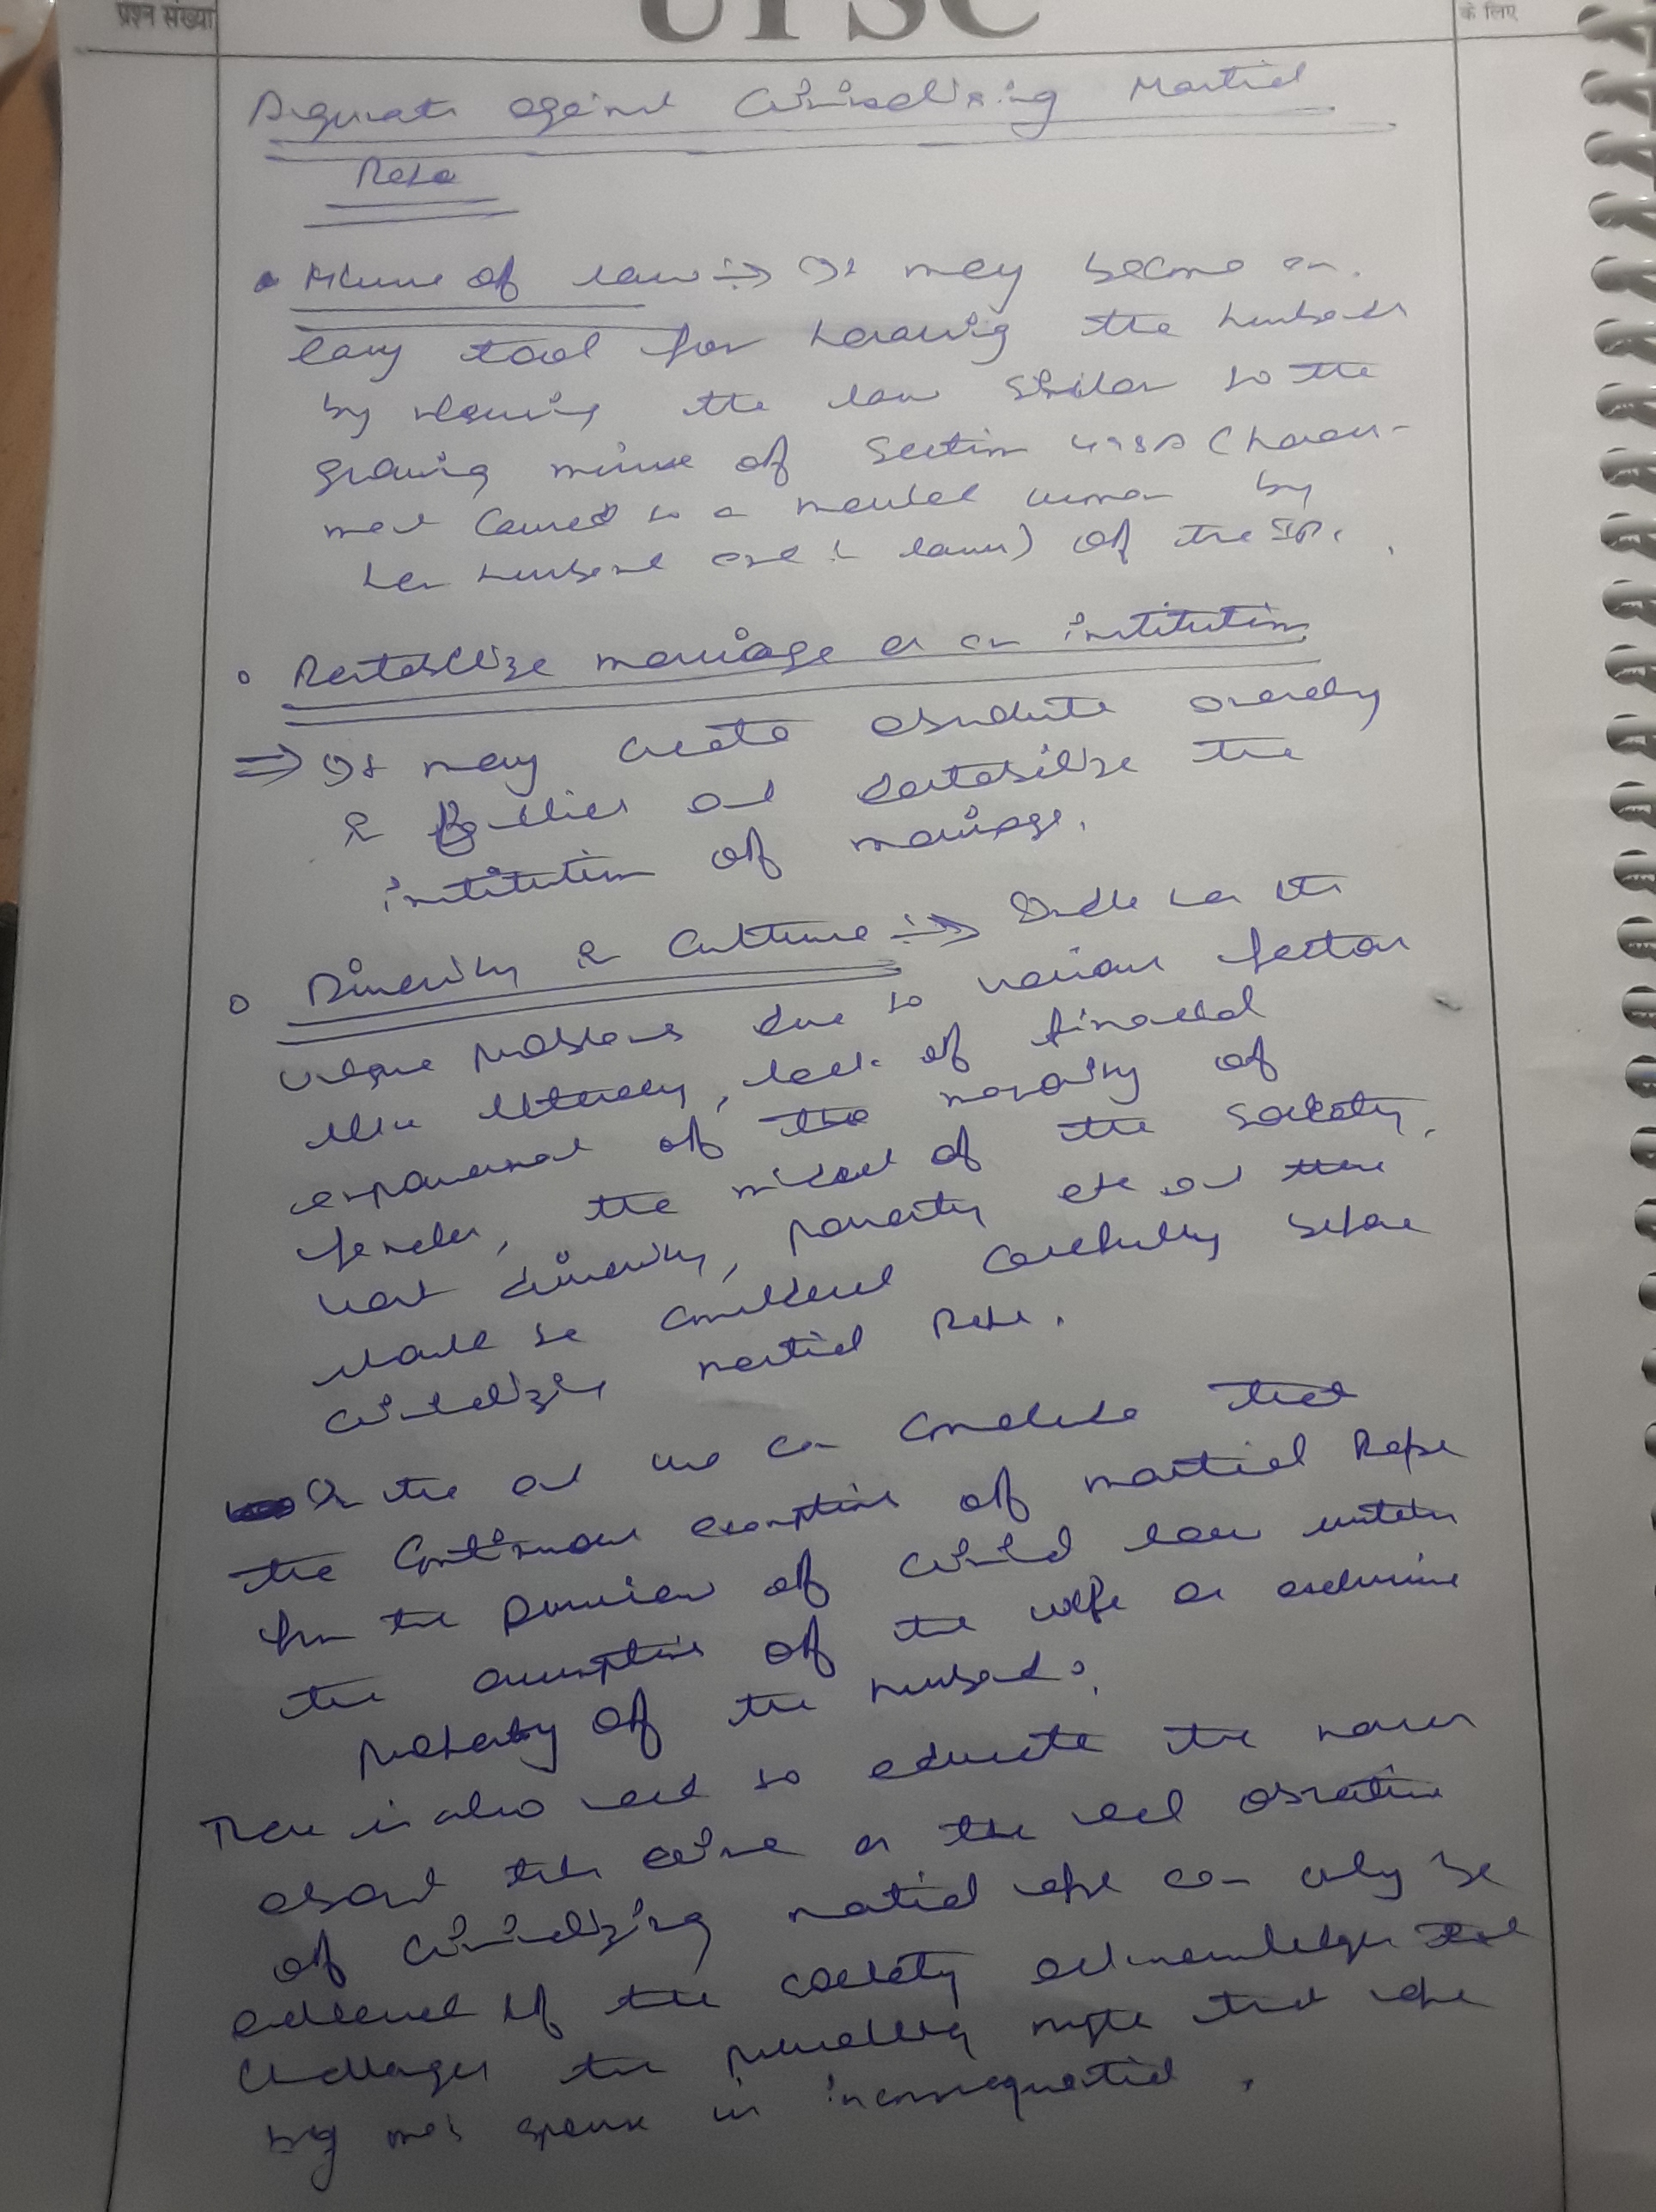 प्रश्न संख्या
UPSC
के लिए
Arguments against Criminalizing Marital
Rape
• Misuse of law ⇒ It may become an
easy tool for harassing the husbands
by misusing the law similar to the
growing misuse of Section 498A (harass-
ment caused to a married woman by
her husband and in laws) of the IPC.
• Destabilize marriage as an institution
⇒ It may create absolute anarchy
in families and destabilize the
institution of marriage.
• Diversity & Culture ⇒ India has its
unique problems due to various factors
like literacy, lack of financial
empowerment of the majority of
females, the mindset of the society,
vast diversity, poverty etc and these
should be considered carefully before
criminalizing marital Rape.
In the end we can conclude that
the continuous exemption of marital Rape
from the purview of criminal law
the assumption of the wife as exclusive
property of the husband.
There is also need to educate the masses
about this crime as the real objective
of criminalizing marital rape can only be
achieved if the society acknowledges and
challenges the prevailing myth that rape
by one's spouse is inconsequential.